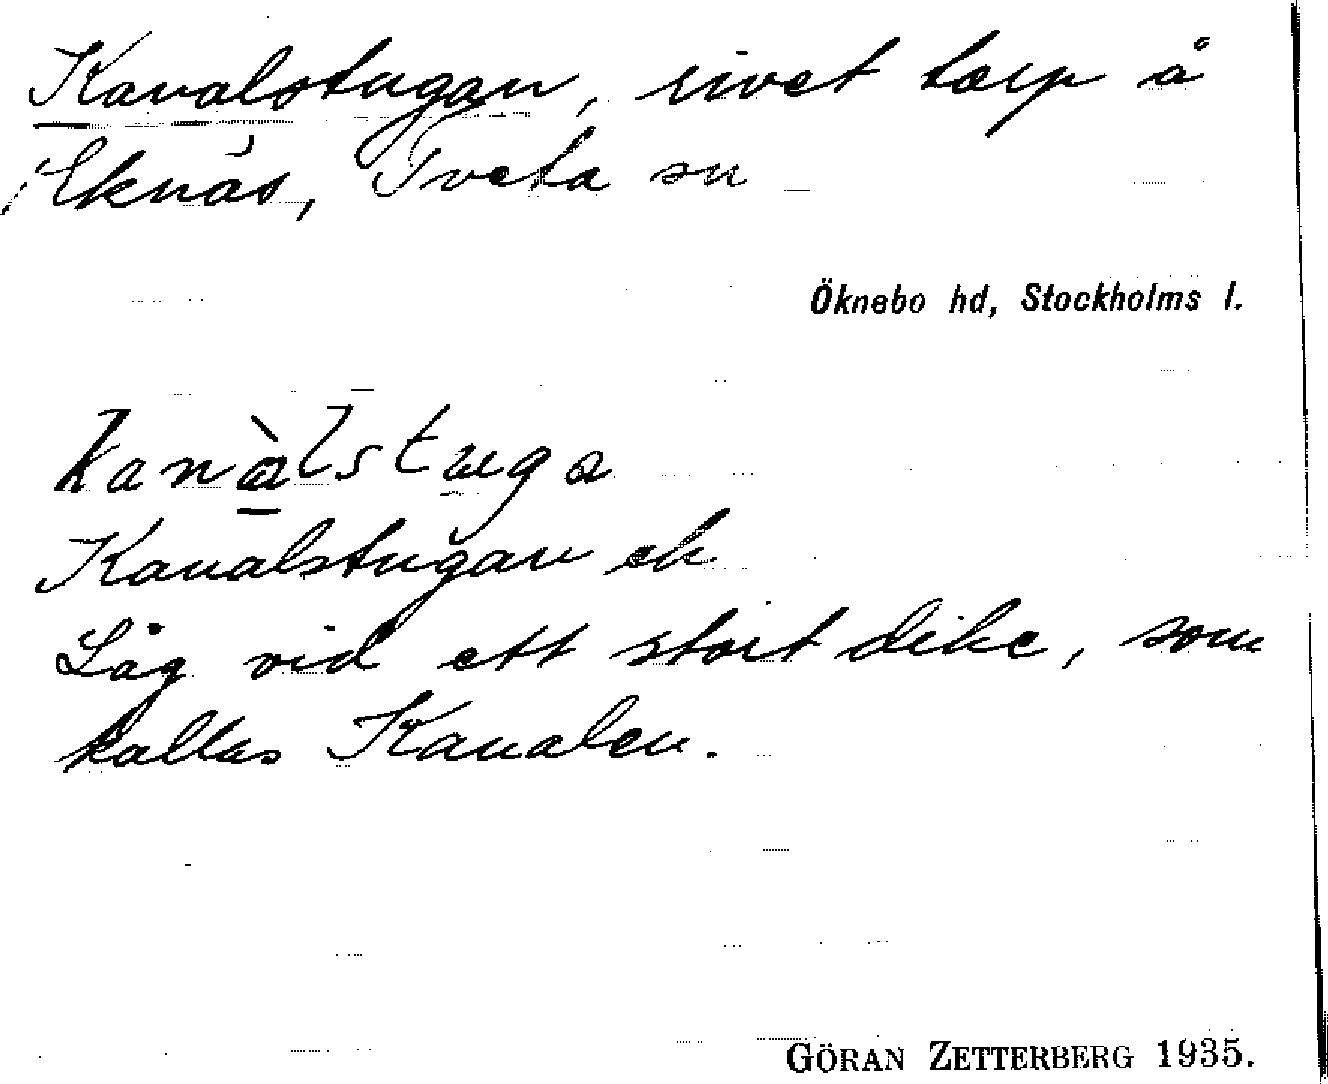 Kanalstugan, rivet torp å
Eknäs, Tveta sn
Öknebo hd, Stockholms l.
kanàlstuga
Kanalstugan ek
Låg vid ett stort dike, som
kallas Kanalen.
GÖRAN ZETTERBERG 1935.